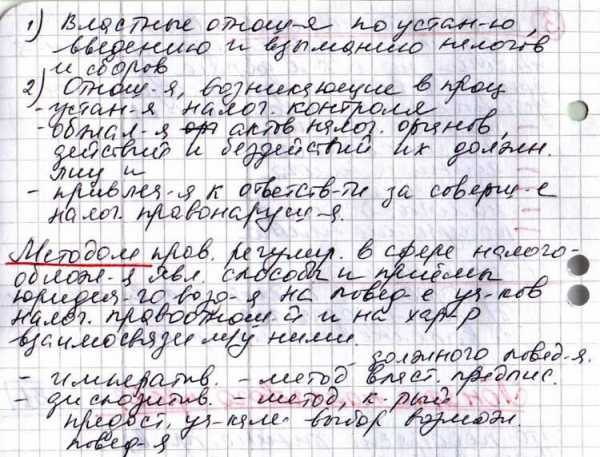 1) Властные отнош-я по устан-ю,
введению и взыманию налогов
и сборов
2) Отнош-я, возникающие в проц
- устан-я налог. контроля
- обжал-я актов налог. органов,
действий и бездействий их должн.
лиц и
- привлеч-я к ответств-ти за соверш-е
налог. правонаруш-я.
Методом прав. регулир. в сфере налого-
облож-я явл. способы и приёмы
юридич-го возд-я на повед-е уч-ков
налог. правоотнош-й и на хар-р
взаимосвязи м/у ними.
должного повед-я.
- императив. - метод власт. предпис.
- диспозитив. - метод, к-рый
предост. уч-кам выбор возмож.
повед-я